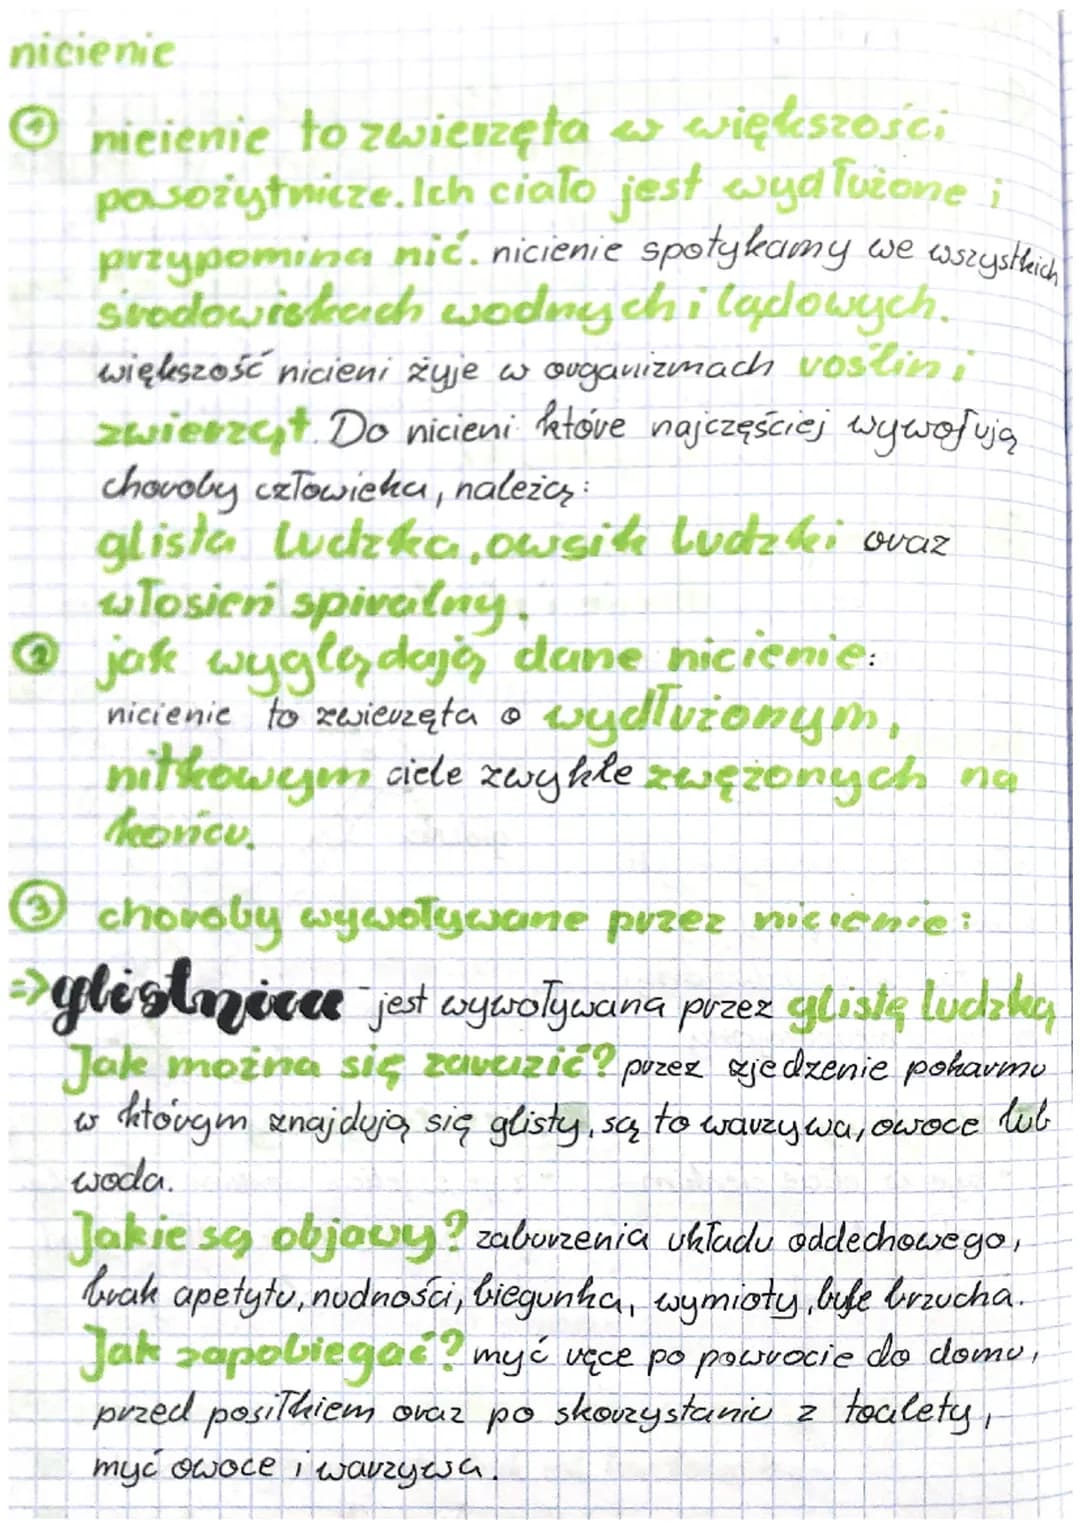 nicienie
① nicienie to zwierzęta w większości
pasożytnicze. Ich ciało jest wydłużone i
przypomina nić. nicienie spotykamy we wszystkich
środowiskach wodnych i lądowych.
większość nicieni żyje w organizmach roślin i
zwierząt. Do nicieni które najczęściej wywołują
choroby człowieka, należą:
glista ludzka, owsik ludzki oraz
włosień spiralny.
② jak wyglądają dane nicienie:
nicienie to zwierzęta o wydłużonym,
nitkowym ciele zwykle zwężonych na
końcu.
③ choroby wywoływane przez nicienie:
=> glistnica - jest wywoływana przez glistę ludzką
Jak można się zarazić? przez zjedzenie pokarmu
w którym znajdują się glisty, są to warzywa, owoce lub
woda.
Jakie są objawy? zaburzenia układu oddechowego,
brak apetytu, nudności, biegunka, wymioty, bule brzucha.
Jak zapobiegać? myć ręce po powrocie do domu,
przed posiłkiem oraz po skorzystaniu z toalety,
myć owoce i warzywa.